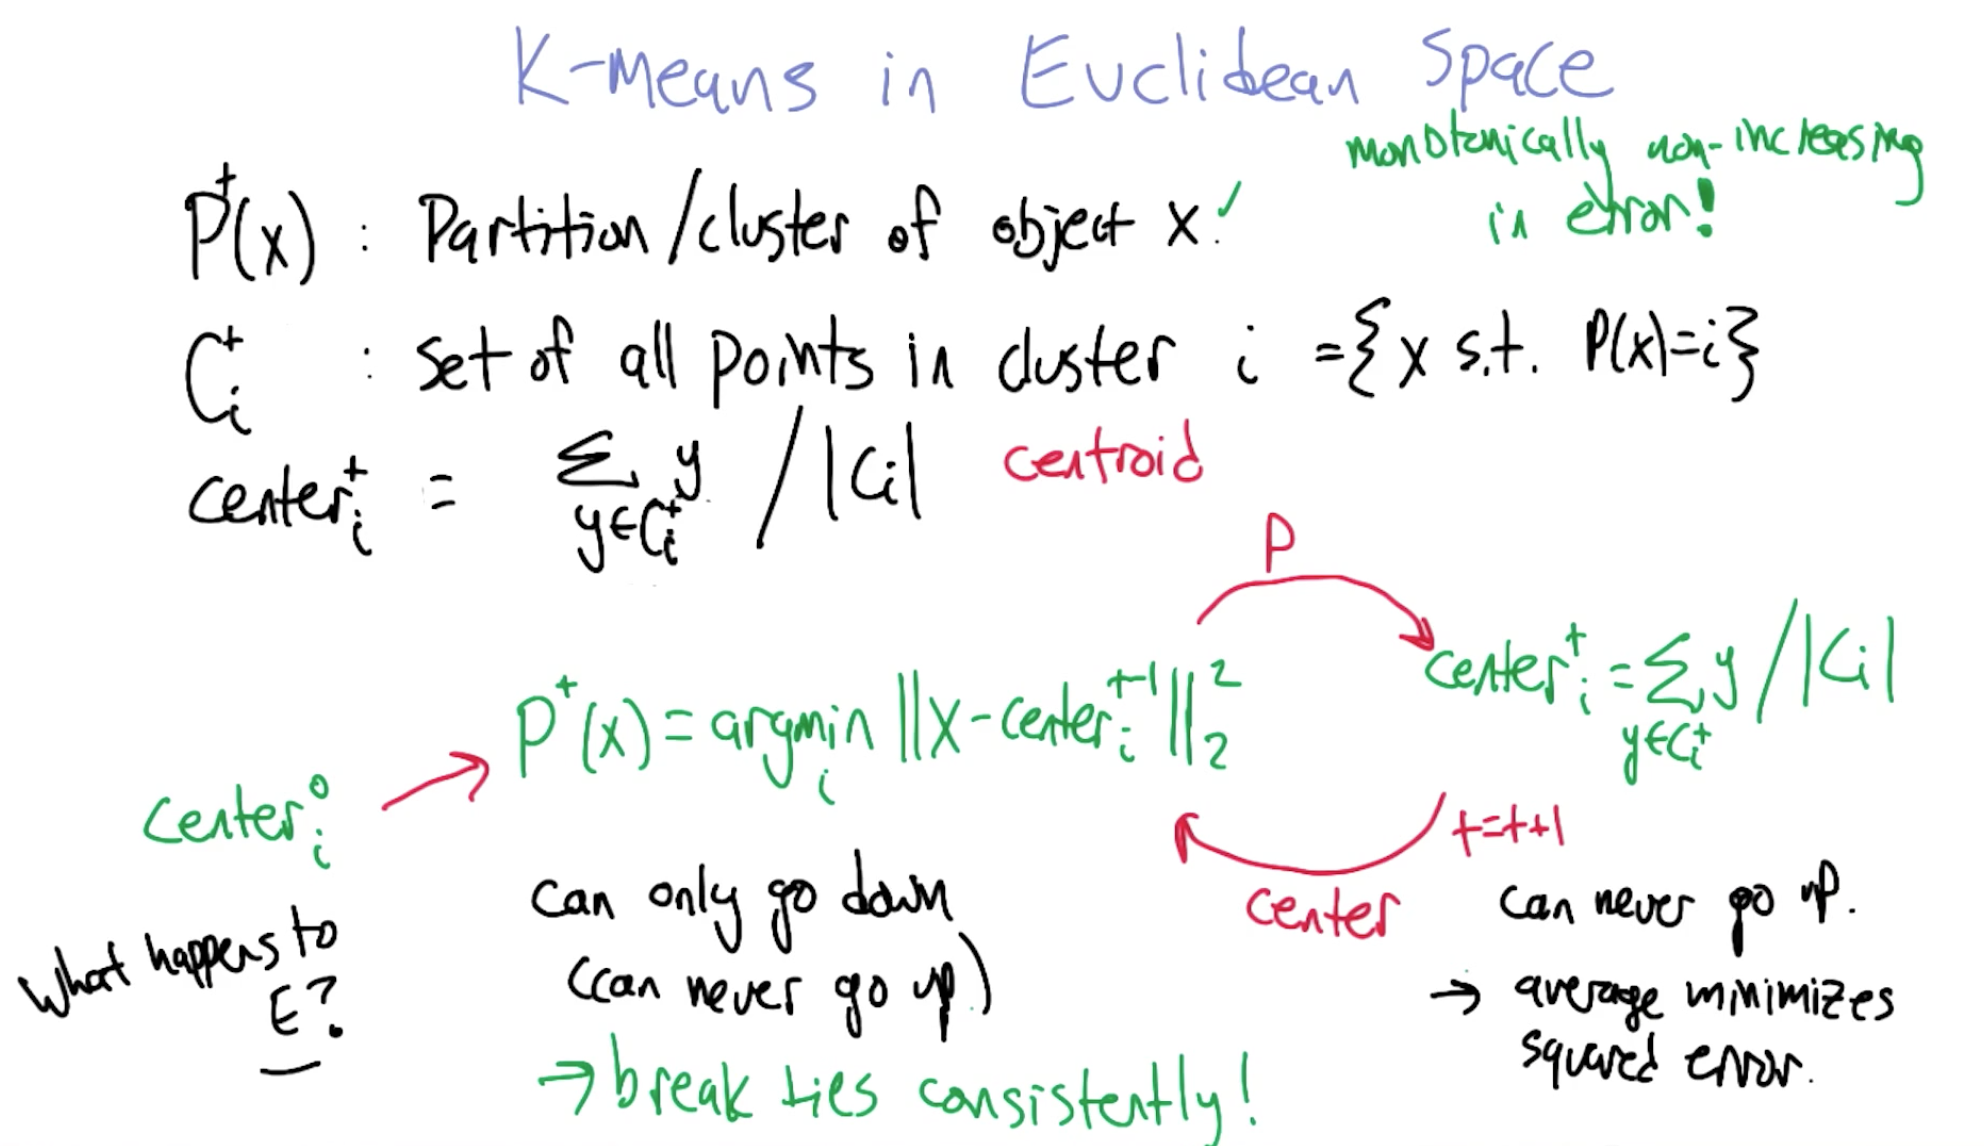 K-means in Euclidean Space
monotonically non-increasing
in error!
P^t(x) : Partition/cluster of object x. ✓
C_i^t : set of all points in cluster i = {x s.t. P(x)=i}
center_i^t = Σ_{y∈C_i^t} y / |C_i|
centroid
P
center_i^t = Σ_{y∈C_i^t} y / |C_i|
P^t(x) = argmin_i ||x - center_i^{t-1}||_2^2
center_i^0
t=t+1
center
What happens to
E?
can only go down
(can never go up)
→ break ties consistently!
can never go up.
→ average minimizes
squared error.